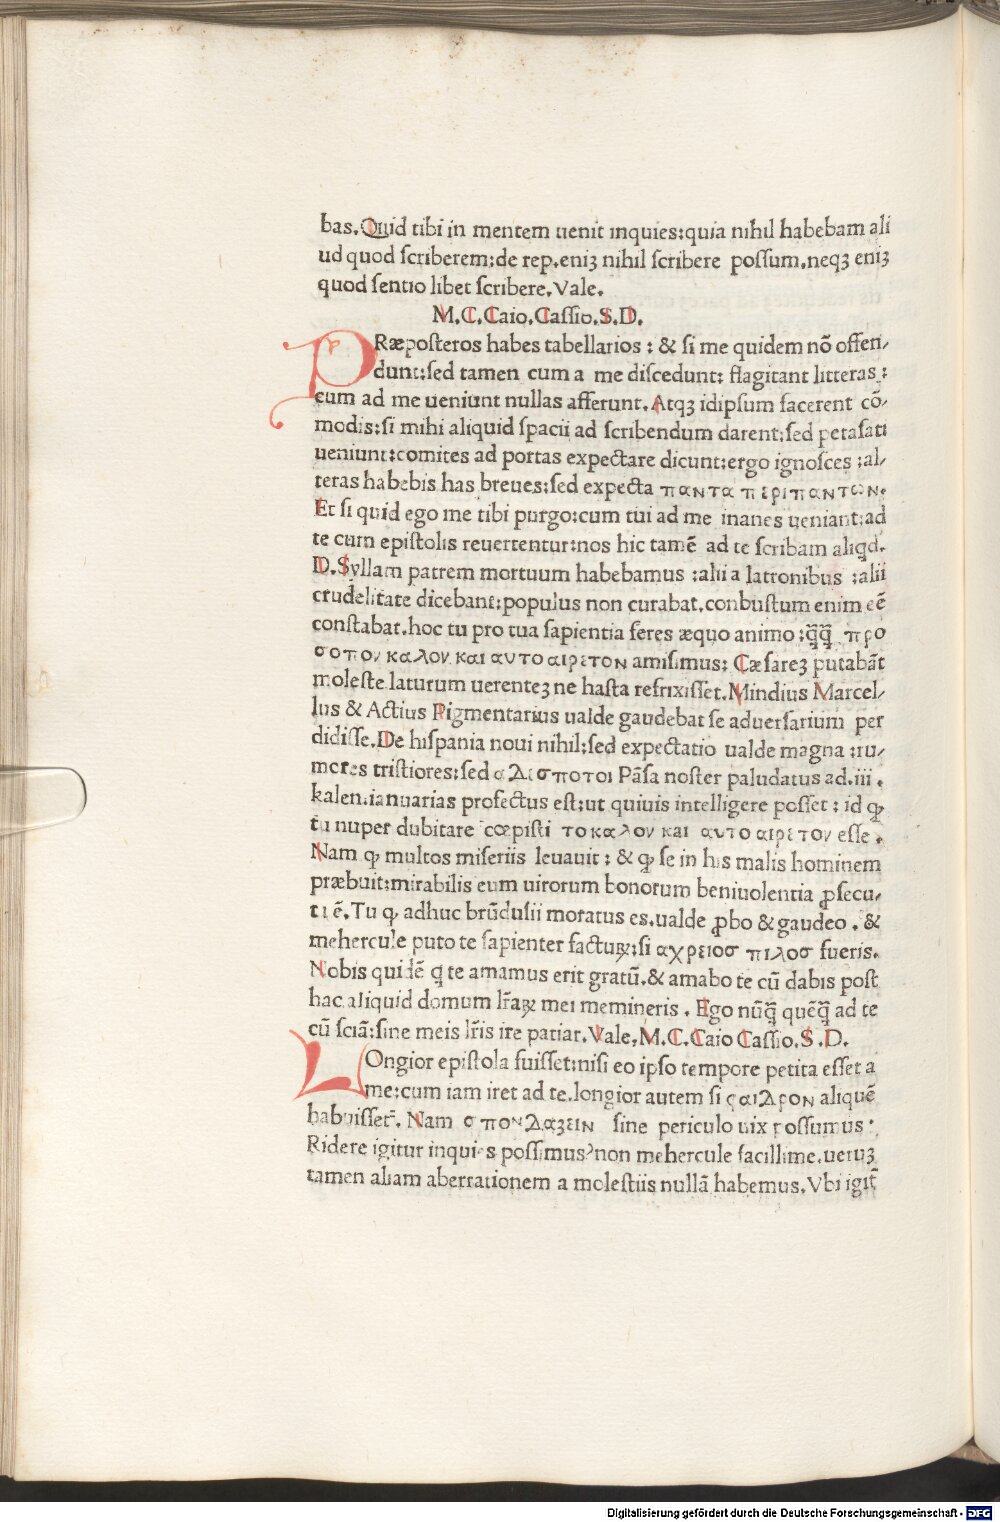 bas.Quid tibi in mentem uenit inquies:quia nihil habebam ali
ud quod ſcriberem:de rep.eniꝫ nihil ſcribere poſſum.neqꝫ eniꝫ
quod ſentio libet ſcribere.Vale.
M.C.Caio.Caſſio.S.D.
PRæpoſteros habes tabellarios : & ſi me quidem nō offen/
dunt:ſed tamen cum a me diſcedunt: flagitant litteras :
cum ad me ueniunt nullas afferunt.Atqꝫ idipſum facerent cō/
modis:ſi mihi aliquid ſpacii ad ſcribendum darent:ſed petaſati
ueniunt:comites ad portas expectare dicunt:ergo ignoſces :al/
teras habebis has breues:ſed expecta παντα περιπαντων.
Et ſi quid ego me tibi purgo:cum tui ad me inanes ueniant:ad
te cum epiſtolis reuertentur:nos hic tamē ad te ſcribam aliqd.
D.Syllam patrem mortuum habebamus :alii a latronibus :alii
crudelitate dicebant:populus non curabat.conbuſtum enim eē
conſtabat.hoc tu pro tua ſapientia feres æquo animo :q̄q̄ προ
σοπον καλον και αυτοαιρετον amiſimus: Cæſareꝫ putabāt
moleſte laturum uerenteꝫ ne haſta refrixiſſet.Mindius Marcel/
lus & Actius Pigmentarius ualde gaudebat ſe aduerſarium per
didiſſe.De hiſpania noui nihil:ſed expectatio ualde magna :ru/
mores triſtiores:ſed αδισποτοι Pāſa noſter paludatus ad.iii.
kalen.ianuarias profectus eſt:ut quiuis intelligere poſſet : id ꝙ
tu nuper dubitare cœpiſti τοκαλον και αυτοαιρετον eſſe .
Nam ꝙ multos miſeriis leuauit : & ꝙ ſe in his malis hominem
præbuit:mirabilis eum uirorum bonorum beniuolentia ꝓſecu/
ti ē.Tu ꝙ adhuc brūduſii moratus es.ualde ꝓbo & gaudeo . &
mehercule puto te ſapienter facturꝫ:ſi αχρειοσ πιλοσ fueris.
Nobis quidē q̄ te amamus erit gratū.& amabo te cū dabis poſt
hac aliquid domum lr̄aꝝ mei memineris . Ego nūq̄ quēq̄ ad te
cū ſciā:ſine meis lr̄is ire patiar.Vale.M.C.Caio Caſſio.S.D.
LOngior epiſtola fuiſſet:niſi eo ipſo tempore petita eſſet a
me:cum iam iret ad te.longior autem ſi ςαιδρον aliquē
habuiſſet̄. Nam σπονδαζειν ſine periculo uix poſſumus :
Ridere igitur inquies poſſimus?non mehercule facillime.ueruꝫ
tamen aliam aberrationem a moleſtiis nullā habemus.Vbi igit̄
Digitalisierung gefördert durch die Deutsche Forschungsgemeinschaft - DFG